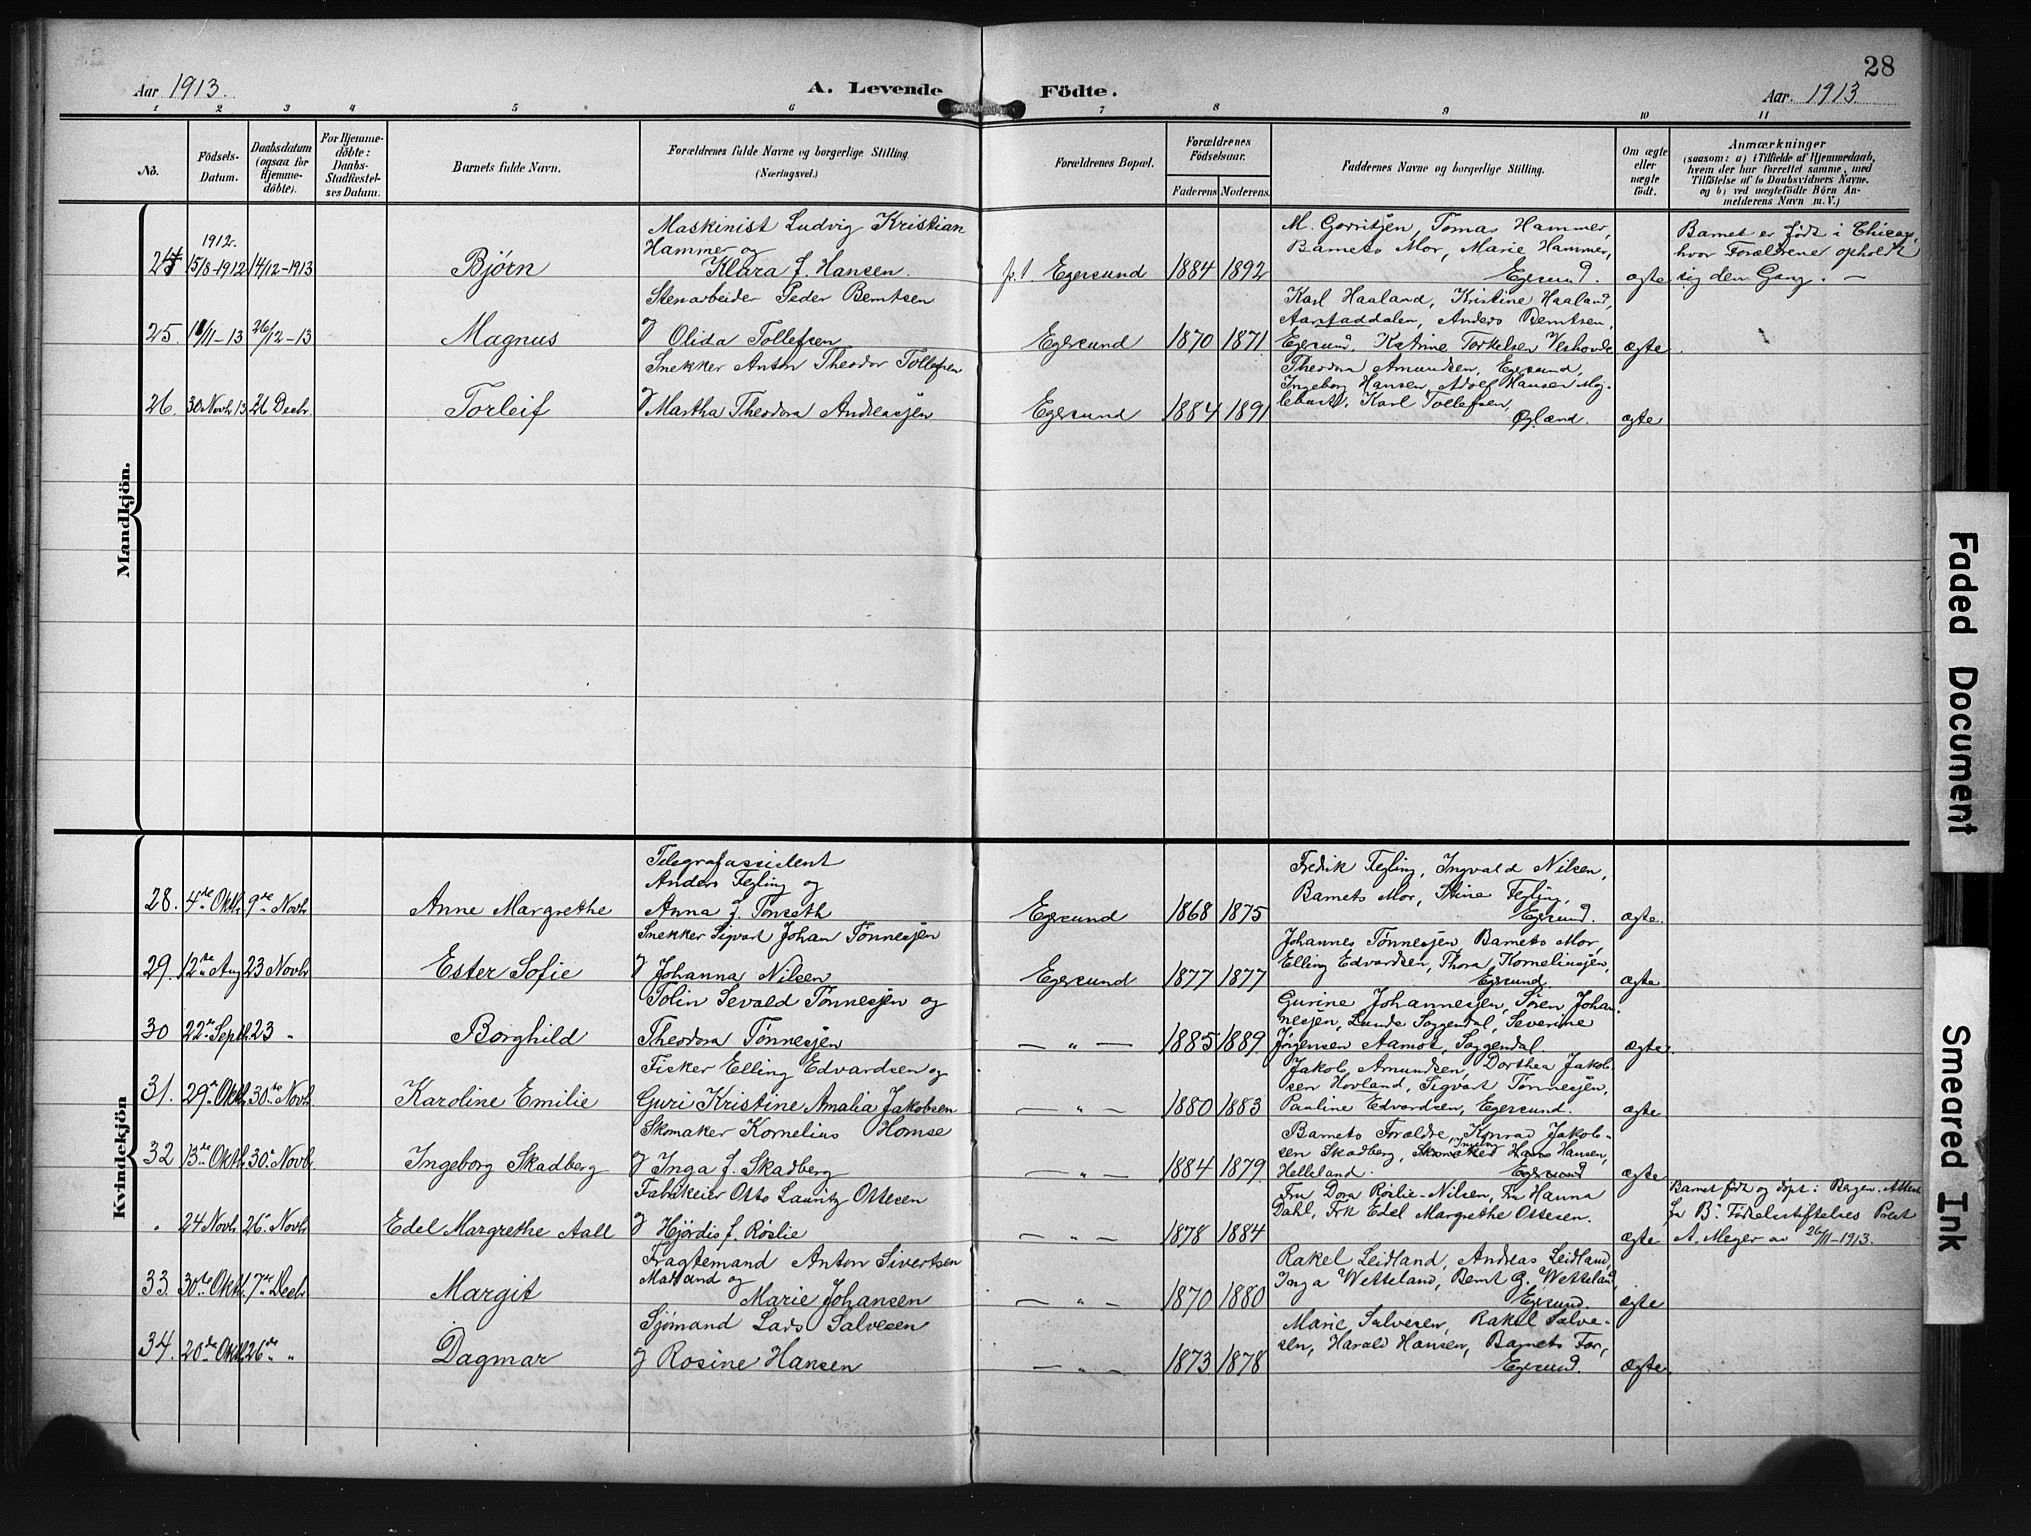 28
Aar 1913. A. Levende Födte. Aar. 1913.
1 2 3 4 5 6 7 8 9 10 11
No.
Födsels-
Datum.
Daabsdatum
(ogsaa for
Hjemme-
döbte).
For Hjemme-
döbte:
Daabs-
Stadfæstel-
ses Datum.
Barnets fulde Navn.
Forældrenes fulde Navne og borgerlige Stilling
(Næringsvei.)
Forældrenes Bopæl.
Forældrenes
Födselsaar.
Faderens Moderens.
Faddernes Navne og borgerlige Stilling.
Om ægte
eller
uægte
födt.
Anmærkninger
(saasom: a) i Tilfælde af Hjemmedaab,
hvem der har forrettet samme, med
Tilföielse af to Daabsvidners Navne.
og b) ved uægtefödte Börn An-
melderens Navn m. V.)
Mandkjön.
1912.
24 15/8-1912 14/12-1913
Bjørn
Maskinist Ludvig Kristian
Hammer og
Klara f. Hansen.
p.t. Egersund 1884 1892
M. Tomas Hammer,
Barnets Mor, Marie Hammer,
Egersund.
ægte
Barnet er født i Chicago,
hvor Forældrene opholdt
sig den Gang. —
25. 11/11-13 26/12-13
Magnus
Stenarbeider Peder Berntsen
og Olida Tollefsen
Egersund 1870 1871
Karl Haaland, Kristine Haaland,
Aarstaddalen, Anders Berntsen,
Egersund, Katrine Torkelsen Veshovde
ægte.
26. 30 Novbr 13 26 Decbr.
Torleif
Snekker Anton Theodor Tollefsen
og Martha Theodora Andreassen
Egersund 1884 1891
Theodora Amundsen, Egersund,
Ingeborg Hansen, Adolf Hansen Mog-
lebust, Karl Tollefsen,
Øglænd.
ægte
Kvindekjön
28. 4de Oktbr. 9de Novbr
Anne Margrethe
Telegrafassistent
Anders Fegling og
Anna f. Tonseth
Egersund 1868 1875
Fredrik Fegling, Ingvald Nilsen,
Barnets Mor, Stine Fegling,
Egersund.
ægte.
29. 12te Aug 23 Novbr
Ester Sofie
Snekker Sigvart Johan Tønnesjen
og Johanna Nilsen
Egersund 1877 1877
Johannes Tønnesjen, Barnets Mor,
Elling Edvardsen, Thora Korneliusjen,
Egersund.
ægte
30 22de Septbr. 23 "
Borghild
Tolin Sevald Tønnesjen og
Theodora Tønnesjen
— " — 1885 1889
Gurine Johannesjen, Søren Johan-
nesjen, Lunde Soggendal, Severine
Jørgensen Aamot, Soggendal.
ægte.
31. 29de Oktbr. 30te Novbr.
Karoline Emilie
Fisker Elling Edvardsen og
Guri Kristine Amalia Jakobsen
— " — 1880 1883
Jakob Amundsen, Dorthea Jakob-
sen Hovland, Sigvart Tønnesjen,
Pauline Edvardsen, Egersund.
ægte
32 13de Oktbr. 30te Novbr.
Ingeborg Skadberg
Skomaker Kornelius Homse
og Inga f. Skadberg
— " — 1884 1879
Barnets Forældre, Konrad Jakob-
sen Skadberg, Skomaker Hans Hansen,
Helleland. Egersund
ægte
" 24 Novbr. 26. Novbr.
Edel Margrethe Aall
Fabrikeier Otto Lauritz Ottesen
og Hjørdis f. Røslie
— " — 1878 1884
Fru Dora Røslie-Nilsen, Fru Hanna
Dahl, Frk Edel Margrethe Ottesen.
ægte
Barnet født og døpt i Bergen. Attest
fra B. Fødselsstiftelses Prest
A. Meyer av 26/11-1913.
33. 30te Oktbr. 7de Decbr
Margit
Fragtemand Anton Sivertsen
Marland og
Marie Johansen
— " — 1870 1880
Rakel Leidland, Andreas Leidland,
Inga Wetteland, Bernt G. Wetteland,
Egersund.
ægte
34. 20de Oktbr. 26de "
Dagmar
Sjømand Lars Salvesen
og Rosine Hansen
— " — 1873 1878
Marie Salvesen, Rakel Salve-
sen, Harald Hansen, Barnets Far,
Egersund.
ægte.
Faded Document
Smeared Ink